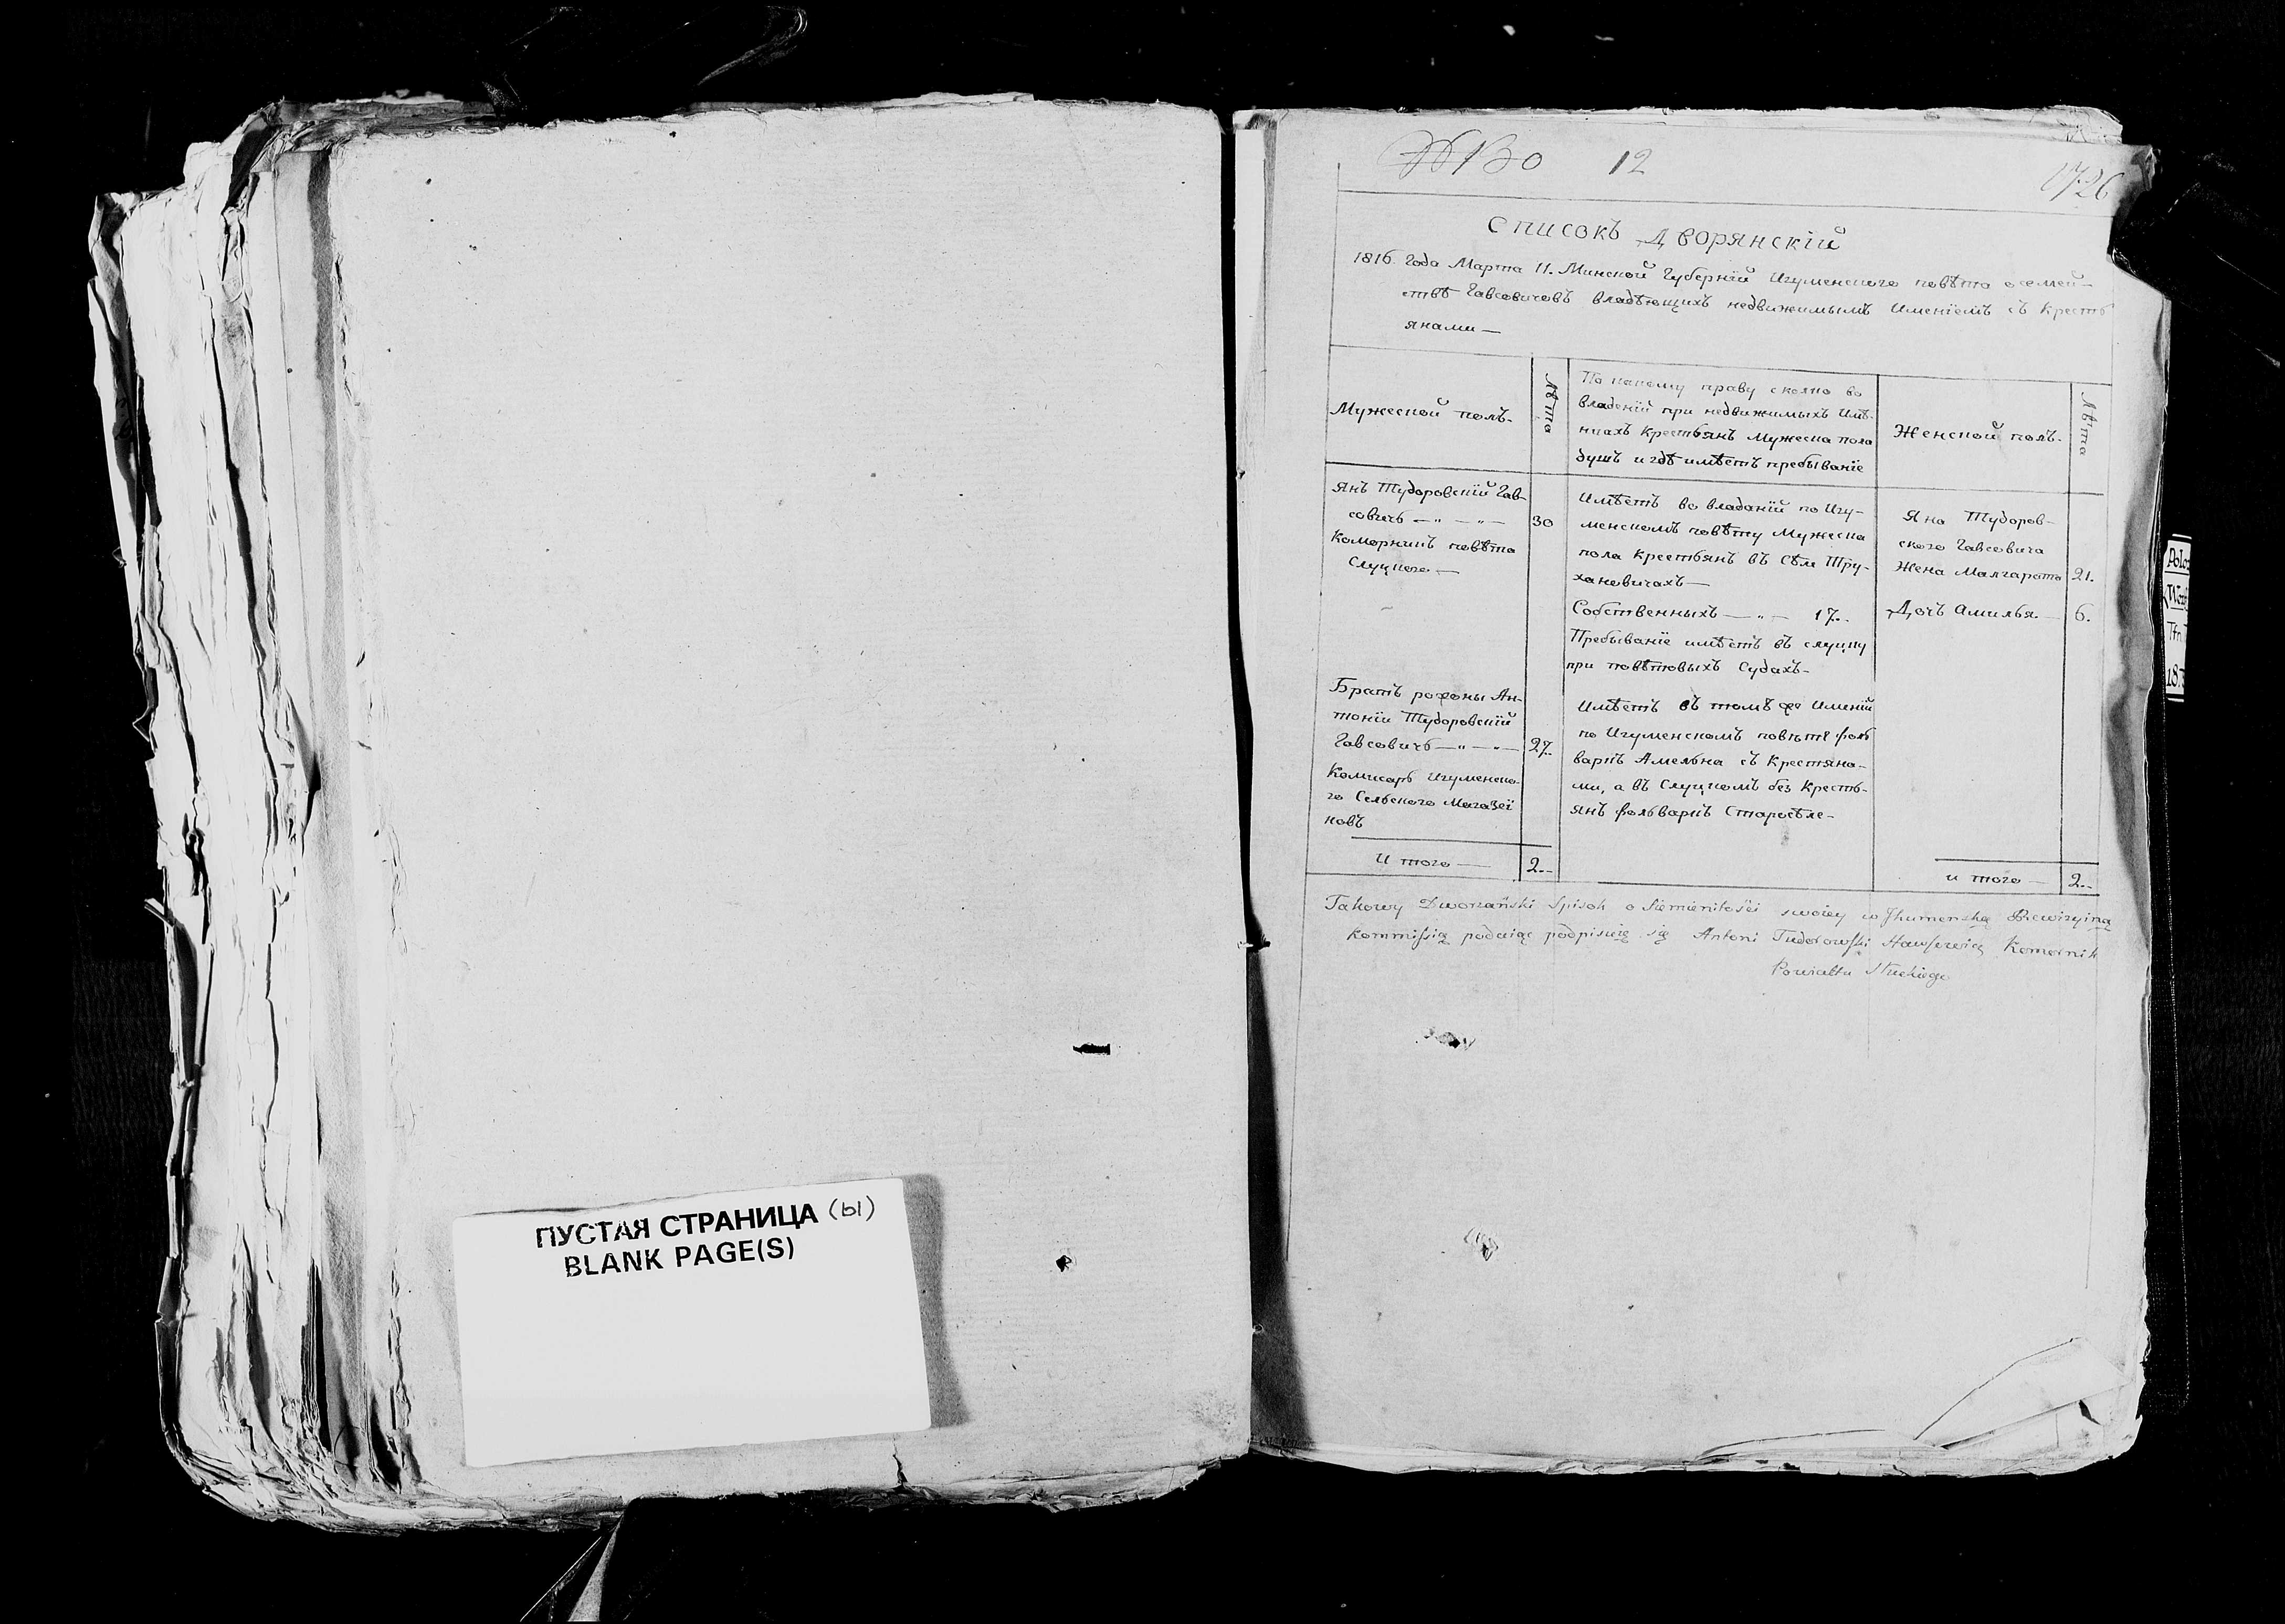 ПУСТАЯ СТРАНИЦА (ы)
BLANK PAGE(S)
12
1726
Списокъ Дворянскій
1816 года Марта 11. Минской Губерній Игуменского повѣта о семей-
ствѣ Гавсовичовъ владѣющихъ недвижимымъ Имѣніемъ съ Кресть
янами —
Мужеской полъ.
Лѣта
По какому праву сколко во
владеній при недвижимыхъ Имѣ-
ниахъ Крестьянъ Мужеска пола
душъ и гдѣ имѣетъ пребыванїе
Женской полъ.
Лѣта
Янъ Тудоровскій Гав-
совичъ — „ — „ —
30
Коморникъ повѣта
Слуцкого —
Имѣетъ во владѣній по Игу-
менскомъ повѣту Мужеска
пола Крестьянъ въ Сѣли Тру-
хановичахъ —
Собственныхъ — „ — 17.
Пребыванїе имѣетъ въ слуцку
при повѣтовыхъ Судахъ —
Яна Тудоров-
ского Гавсовича
Жена Малгарата
21.
Дочъ Амилья —
6.
Братъ рожоны Ан-
тоній Тудоровскій
Гавсовичъ — „ — „ —
27.
Комисаръ Игуменско-
го Сельского Магазеі
новъ
Имѣетъ въ томъ же Именій
по Игуменскомъ повѣтѣ фоль
варкъ Амельна съ Крестяна-
ми, а въ Слуцкомъ без Кресть-
янъ фольваркъ Старосѣле —
И того —
2.
и того —
2.
Takowy Dworzański Spisok o Siemieнitości swoiey w Jhumenską Rewizyiną
Kommissią podaiąc podpisuię się Antoni Tudorowski Hawsewicz Komornik
Powiattu Słuckiego